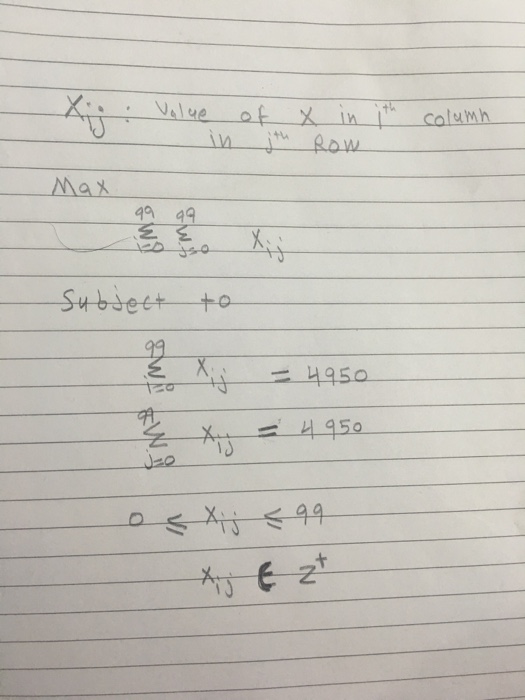 Xij : Value of X in ith column
in jth Row
Max
99 99
Σ Σ Xij
i=0 j=0
Subject to
99
Σ Xij = 4950
i=0
99
Σ Xij = 4950
j=0
0 ≤ Xij ≤ 99
Xij ∈ Z+